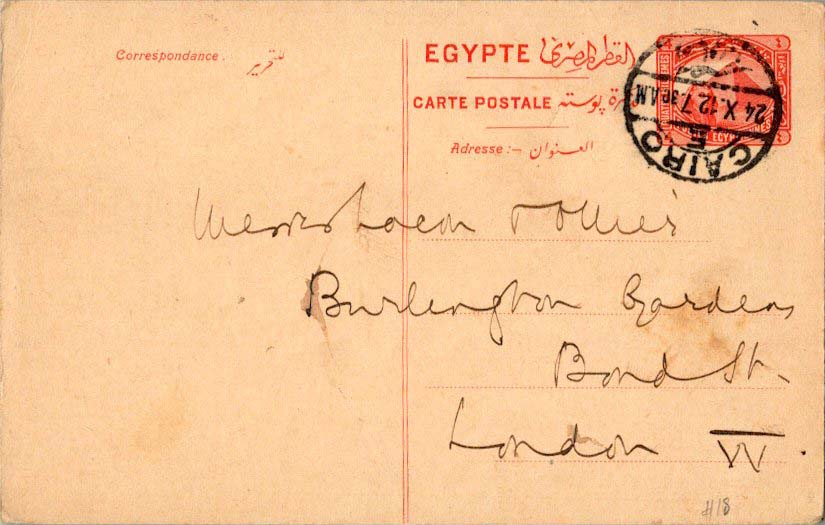 Correspondance . للتحرير
EGYPTE القطر المصري
CARTE POSTALE تذكرة پوسته
Adresse :— العنوان
CAIRO
24 X. 12. 7.30 AM
Burlington Gardens
Bond St.
London W.
#18